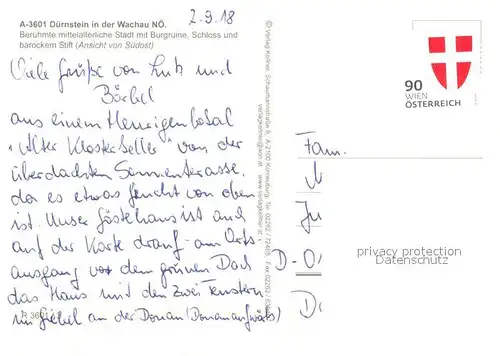 A-3601 Dürnstein in der Wachau NÖ. 2.9.18
Berühmte mittelalterliche Stadt mit Burgruine, Schloss und
barockem Stift (Ansicht von Südost)
Viele Grüße von Lutz und
Bärbel
aus einem Heurigenlokal
"Alter Klosterkeller" von der
überdachten Sonnenterasse,
da es etwas feucht von oben
ist. Unser Gästehaus ist auch
auf der Karte drauf - am Orts
ausgang vor dem grünen Dach
das Haus mit den zwei Fenstern
im Giebel an der Donau (Donauaufwärts)
R 3601
© Verlag Kellner, Schaumannstraße
A-2100 Korneuburg, Tel. 02262 /
90
WIEN
ÖSTERREICH
Fam.
D-0
privacy protection
Datenschutz